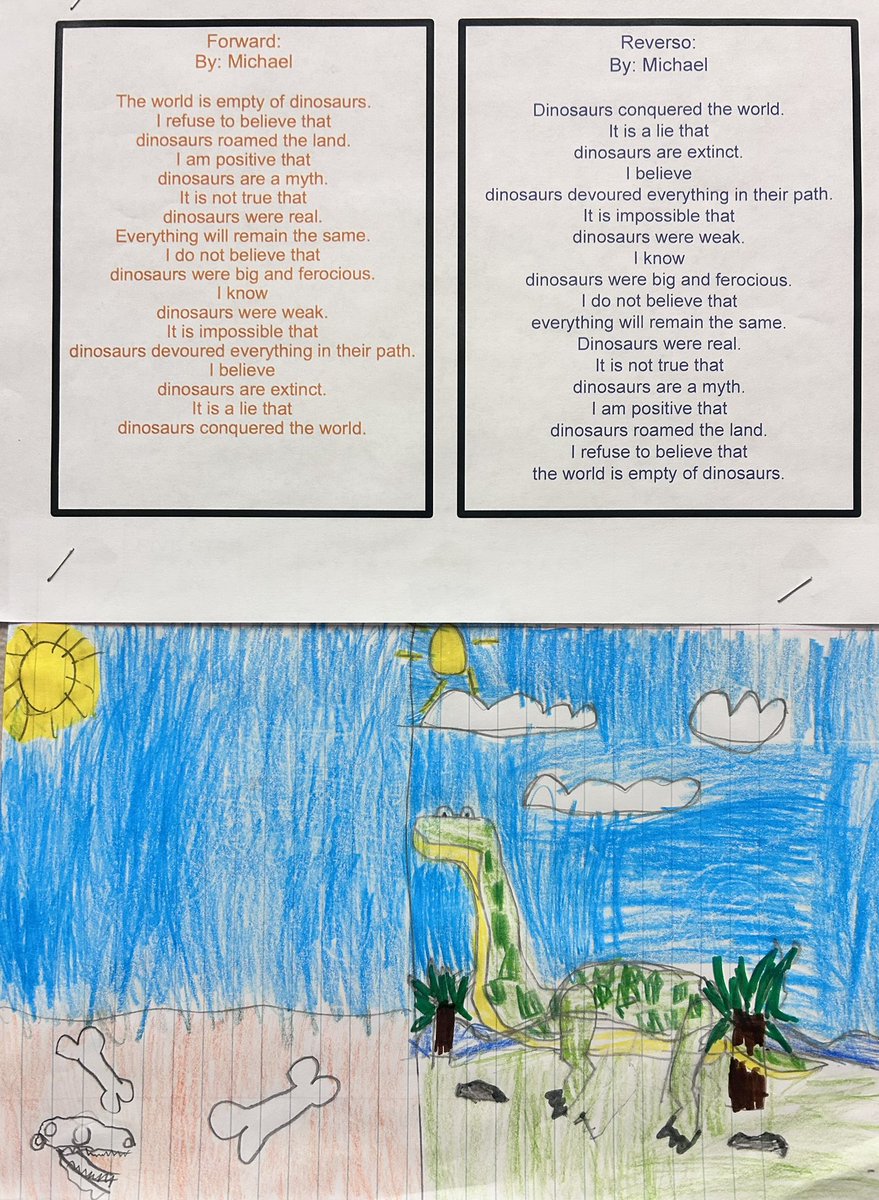 Forward:
By: Michael
The world is empty of dinosaurs.
I refuse to believe that
dinosaurs roamed the land.
I am positive that
dinosaurs are a myth.
It is not true that
dinosaurs were real.
Everything will remain the same.
I do not believe that
dinosaurs were big and ferocious.
I know
dinosaurs were weak.
It is impossible that
dinosaurs devoured everything in their path.
I believe
dinosaurs are extinct.
It is a lie that
dinosaurs conquered the world.
Reverso:
By: Michael
Dinosaurs conquered the world.
It is a lie that
dinosaurs are extinct.
I believe
dinosaurs devoured everything in their path.
It is impossible that
dinosaurs were weak.
I know
dinosaurs were big and ferocious.
I do not believe that
everything will remain the same.
Dinosaurs were real.
It is not true that
dinosaurs are a myth.
I am positive that
dinosaurs roamed the land.
I refuse to believe that
the world is empty of dinosaurs.